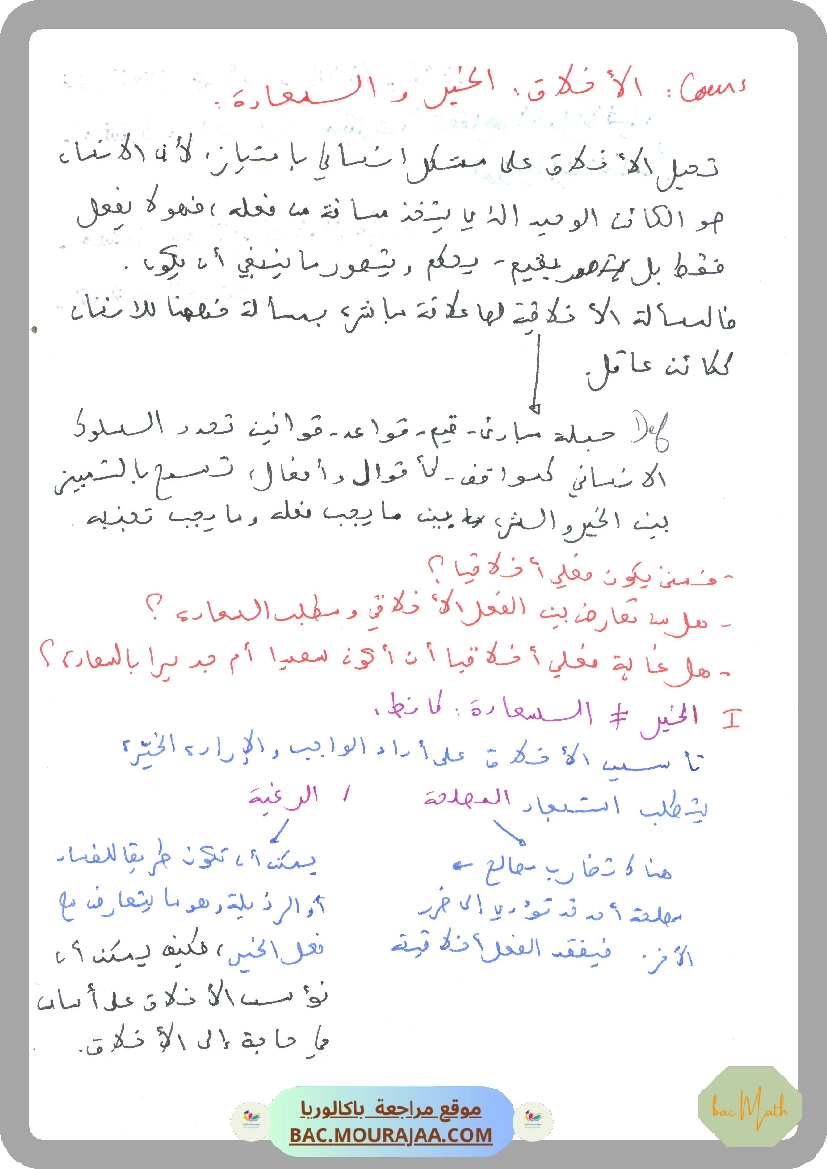 Cours : الأخلاق : الخير والسعادة.
تحيل الأخلاق على مشكل إنساني بامتياز، لأن الإنسان
هو الكائن الوحيد الذي يتخذ مسافة من فعله، فهو لا يفعل
فقط بل يقيم - يحكم ويتصور ما ينبغي أن يكون.
فالمسألة الأخلاقية لها علاقة مباشرة بمسألة فهمنا للإنسان
ككائن عاقل.
Def جملة مبادئ - قيم - قواعد - قوانين تحدد السلوك
الإنساني كمواقف - كأقوال وأفعال، تسمح بالتمييز
بين الخير والشر، بين ما يجب فعله وما يجب تجنبه.
- فمتى يكون فعلي أخلاقيا؟
- هل من تعارض بين الفعل الأخلاقي ومطلب السعادة؟
- هل غاية فعلي أخلاقيا أن أكون سعيدا أم جديرا بالسعادة؟
I الخير ≠ السعادة : كانط.
تأسيس الأخلاق على أداء الواجب والإرادة الخيّرة
يتطلب استبعاد المصلحة / الرغبة
هناك تضارب مصالح ←
مصلحة أحد قد تؤدي إلى ضرر
الآخر. فيفقد الفعل أخلاقيته
يمكن أن تكون طريقا للفساد
أو الرذيلة وهو ما يتعارض مع
فعل الخير، فكيف يمكن أن
نؤسس الأخلاق على أساس
في حاجة إلى الأخلاق.
موقع مراجعة باكالوريا
BAC.MOURAJAA.COM
bac Math